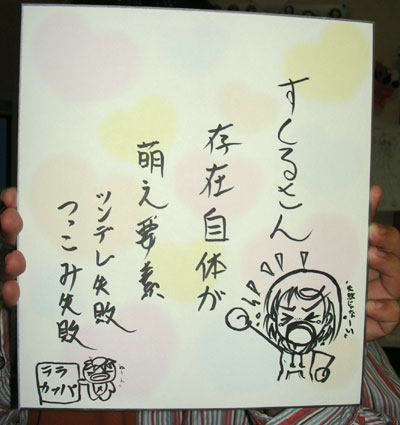 すくるさん
存在自体が
萌え要素
ツンデレ失敗
つっこみ失敗
ララ
カッパ